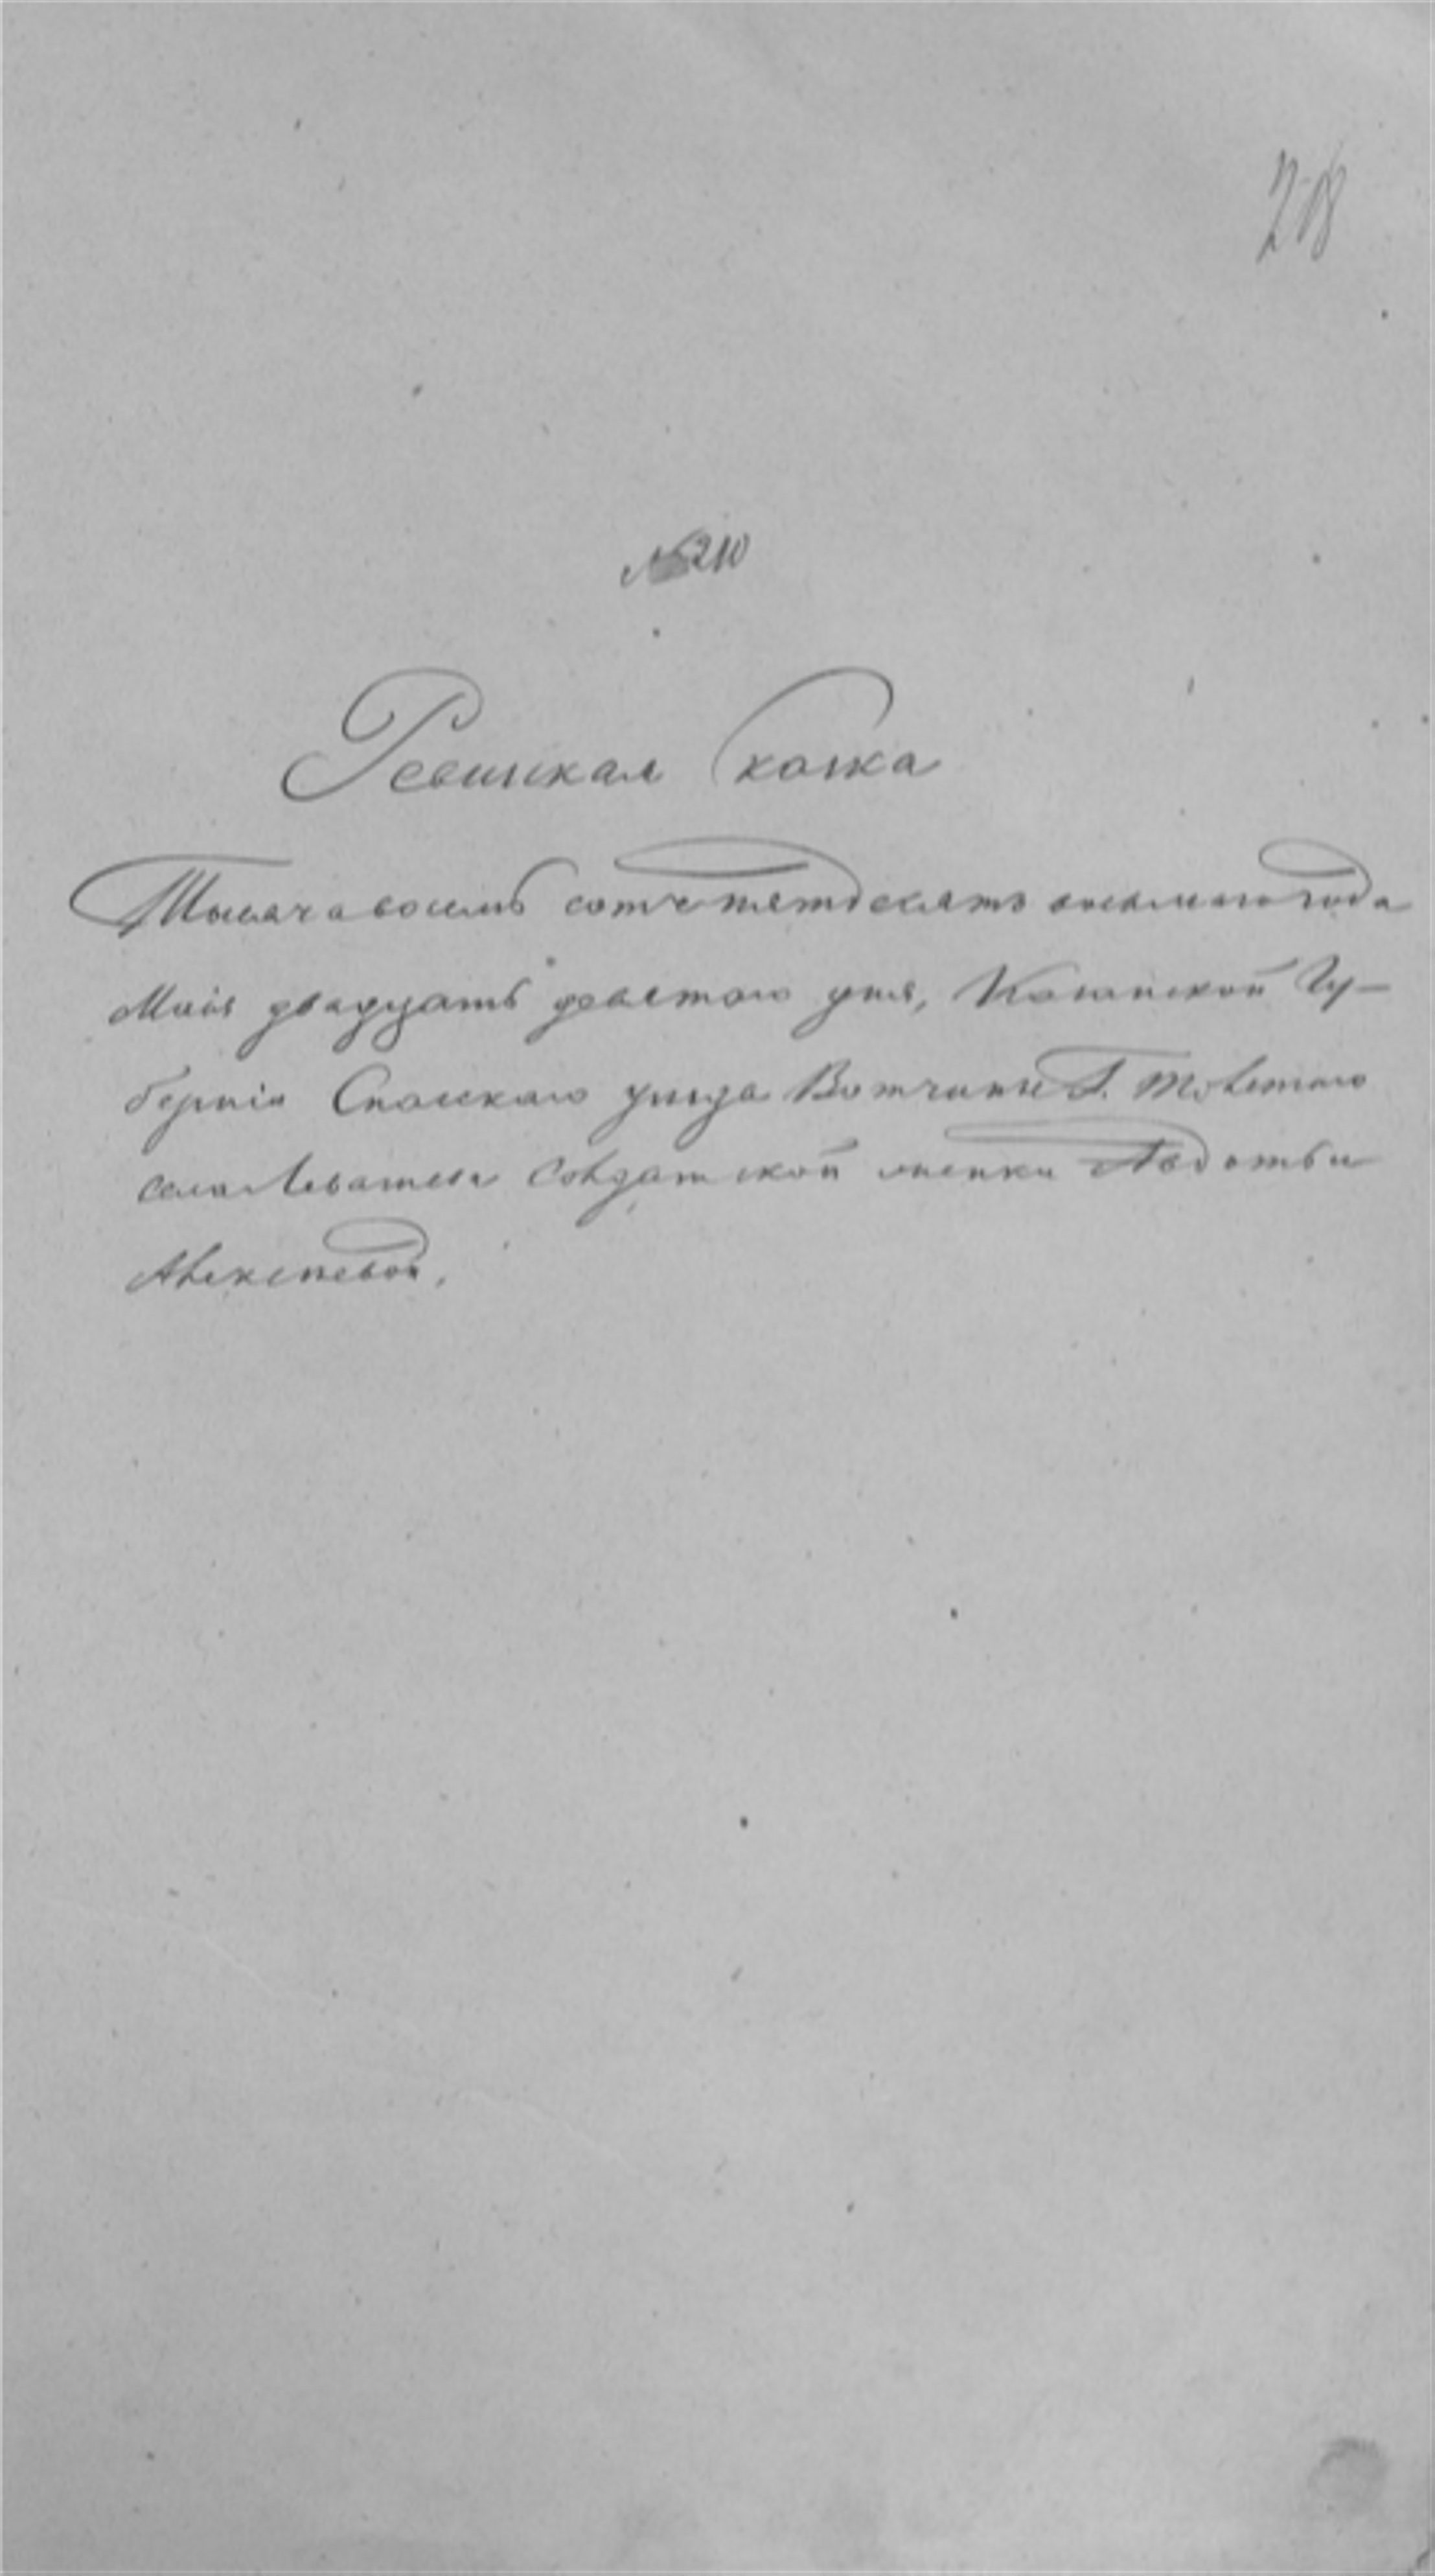 28
№ 210
Ревизская Сказка
Тысяча восемь сотъ пятьдесятъ осьмаго года
Маія двадцать девятаго дня, Казанской Гу-
берніи Спаскаго уезда Вотчине Г. Толстаго
села солдатской женки Авдотьи
Алексеевой,